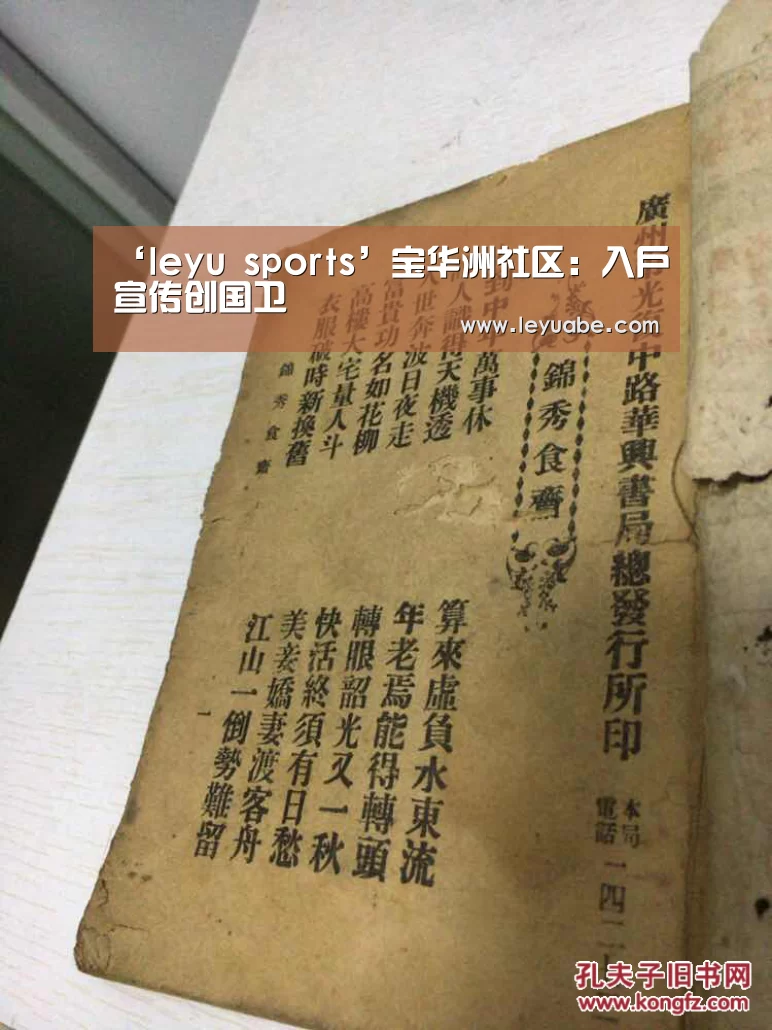 ‘leyu sports’宝华洲社区：入户
宣传创国卫
www.leyuabe.com
廣州 光 中路華興書局總發行所印
本局
電話 一四二
錦秀食齋
到中年萬事休
算來虛負水東流
人識得天機透
年老焉能得轉頭
世奔波日夜走
轉眼韶光又一秋
富貴功名如花柳
快活終須有日愁
高樓大宅量人斗
美妾嬌妻渡客舟
衣服破時新換舊
江山一倒勢難留
錦秀食齋
一
孔夫子旧书网
www.kongfz.com